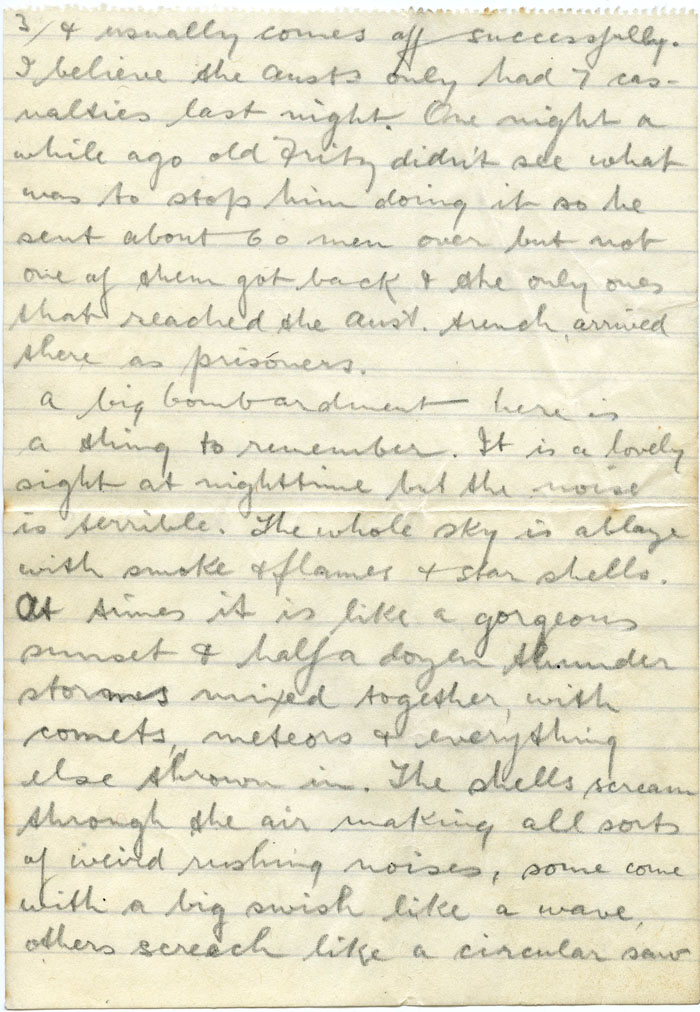 3/ & usually comes off successfully.
I believe the Austs only had 7 cas-
ualties last night. One night a
while ago old Fritz didn't see what
was to stop him doing it so he
sent about 60 men over but not
one of them got back & the only ones
that reached the Aust. trench, arrived
there as prisoners.
A big bombardment here is
a thing to remember. It is a lovely
sight at nighttime but the noise
is terrible. The whole sky is ablaze
with smoke & flames & star shells.
At times it is like a gorgeous
sunset & half a dozen thunder
storms mixed together, with
comets, meteors & everything
else thrown in. The shells scream
through the air making all sorts
of weird rushing noises, some come
with a big swish like a wave,
others screech like a circular saw